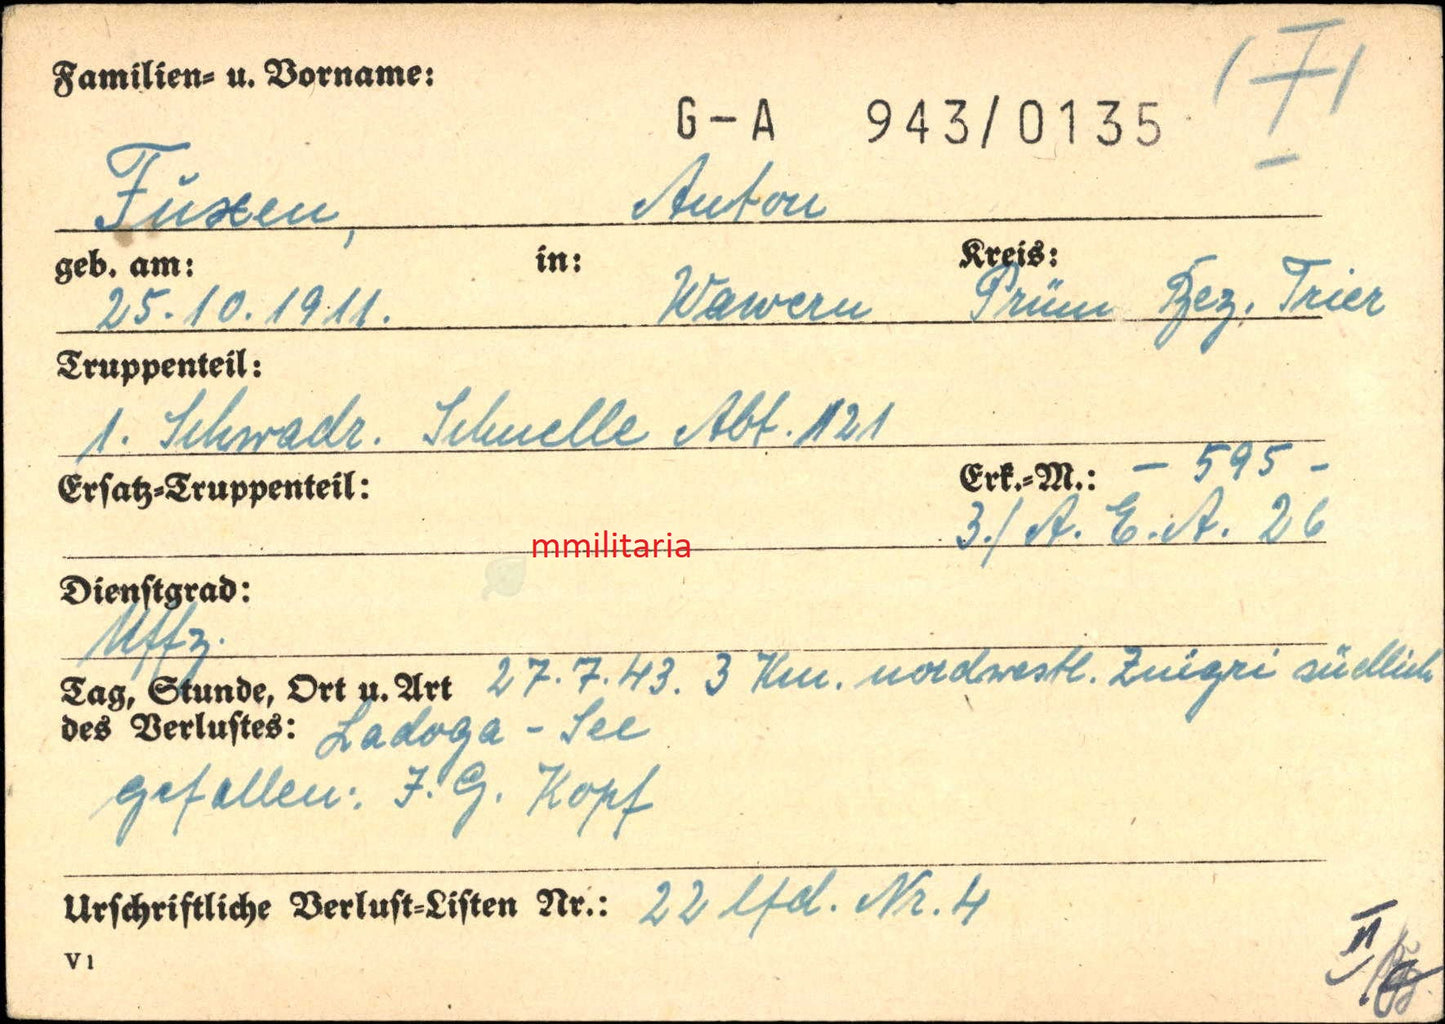 Familien- u. Vorname:
G-A 943/0135
Fuxen, Anton
geb. am: in: Kreis:
25.10.1911. Wawern Prüm Bez. Trier
Truppenteil:
1. Schwadr. Schnelle Abt. 121
Ersatz-Truppenteil: Erk.-M.: - 595 -
3./A.E.A. 26
mmilitaria
Dienstgrad:
Uffz.
Tag, Stunde, Ort u. Art 27.7.43. 3 Km. nordwestl. Znigri südlich
des Verlustes: Ladoga-See
gefallen: I.G. Kopf
Urschriftliche Verlust-Listen Nr.: 22 lfd. Nr. 4
V 1
II